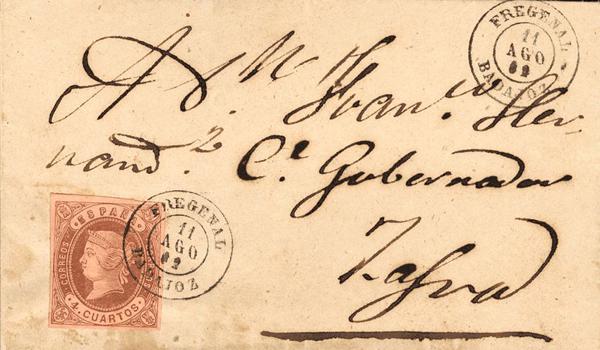 FREGENAL
11
AGO
62
BADAJOZ
A D.ⁿ Juan Her-
nand.ᶻ C.ᵉ Gobernador
Zafra
FREGENAL
11
AGO
62
BADAJOZ
ESPAÑA
CORREOS
4. CUARTOS